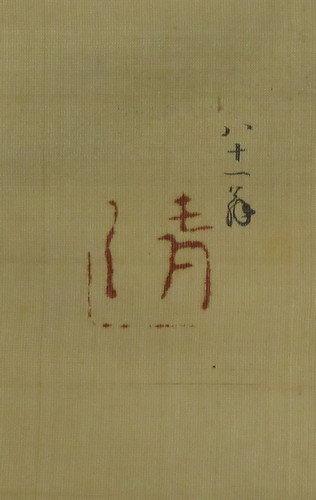 八十一翁